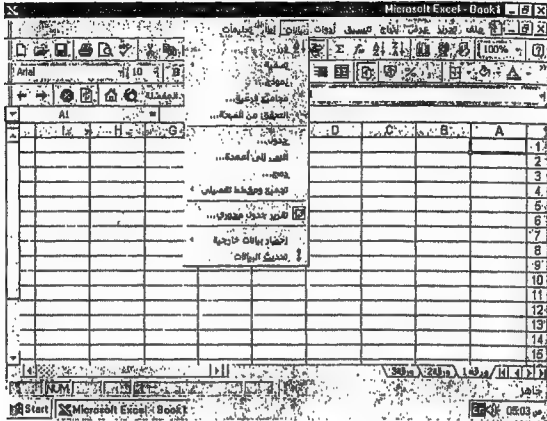 Microsoft Excel - Book1
ملف تحرير عرض إدراج تنسيق أدوات بيانات إطار تعليمات
100%
Arial 10 B
A1 =
فرز...
تصفية
نموذج...
مجاميع فرعية...
التحقق من الصحة...
جدول...
النص إلى أعمدة...
دمج...
تجميع ومخطط تفصيلي
تقرير جدول محوري...
إحضار بيانات خارجية
تحديث البيانات
A B C D G H
1
2
3
4
5
6
7
8
9
10
11
12
13
14
15
ورقة1 ورقة2 ورقة3
جاهز
NUM
Start Microsoft Excel - Book1 05:03 ص